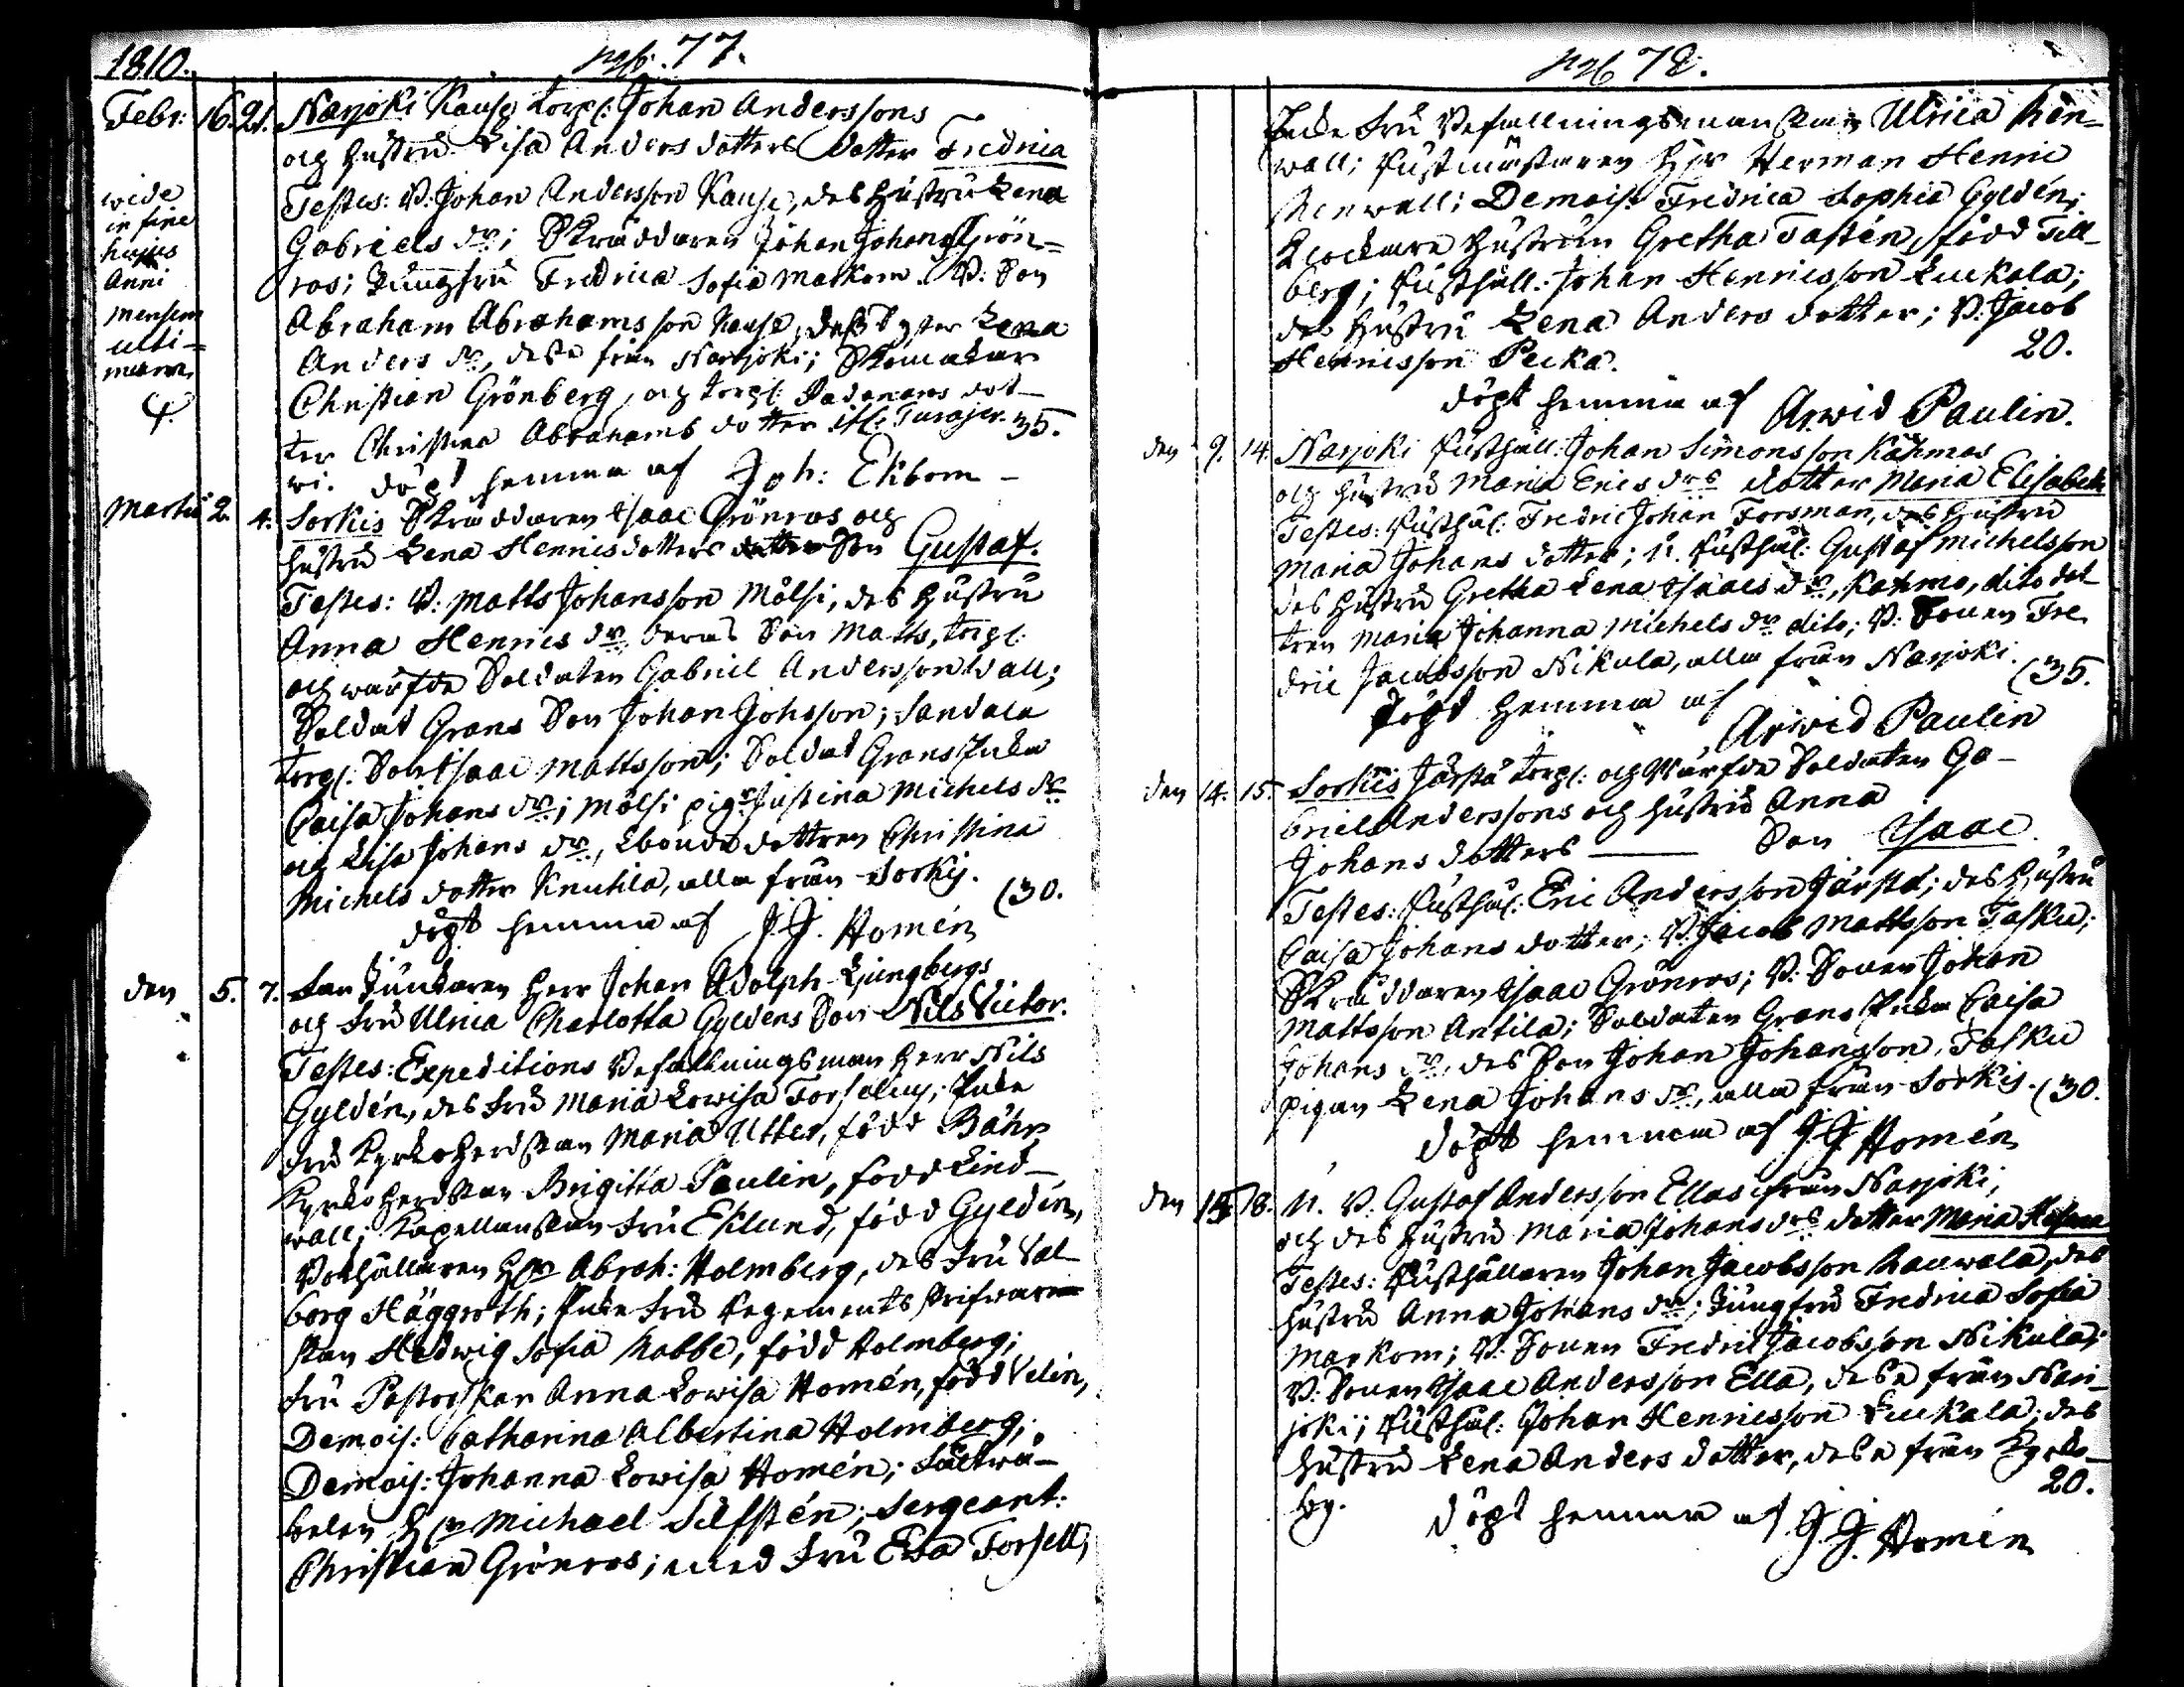 1810.
pag. 77.
Febr: 16. 21. Narjoki Kause torp: Johan Anderssons
och hustru Lisa Anders dotters dotter Fredrica
Testes: B: Johan Andersson Kause, des hustru Lena
Gabriels dr; Skräddaren Johan Johans Grön=
ros; Jungfru Fredrica Sofia Markom. B: Son
Abraham Abrahamsson Kause, des syster Lena
Anders dr, desse från Narjoki; Skomakar
Christian Grönberg, och torp: Ladanans dot-
ter Christina Abrahams dotter 35.
wi. döpt hemma af Joh: Ekbom
wide
in fine
hujus
Anni
mensem
ulti-
mum.
Martii 2. 4. Sorkis Skräddaren Isaac Grönros och
hustru Lena Henricsdotters dotter Son Gustaf.
Testes: B: Matts Johansson Mälsi, des hustru
Anna Henrics dr deras Son Matts, torp:
och warfde Soldaten Gabriel Andersson Wall;
Soldat Grans Son Johan Johsson; Sandala
torp: Son Isaac Mattsson; Soldat Grans Enka
Caisa Johans dr; Mälsi pig: Justina Michels dr
och Lisa Johans dr, Ebonde dottren Christina
Michels dotter Knuhla, alla från Sorkis.
(30.
döpt hemma af J. J. Homén
den 5. 7. Fan Junkaren Herr Johan Adolph Ljungbergs
och Fru Ulrica Charlotta Gyldens Son Nils Victor.
Testes: Expeditions Befallningsman Herr Nils
Gyldén, des Fru Maria Lowisa Forselius; Enke
Fru Kyrkoherdskan Maria Utter, född Bähr,
Kyrkoherdskan Brigitta Paulin, född Lind-
wall; Kapellanskan Fru Eklund, född Gyldén,
Bokhållaren Hr Abrah: Holmberg, des Fru Val-
borg Häggroth; Enke Fru Regements Skrifware
skan Hedwig Sofia Mabbe, född Holmberg;
Fru Pastorskan Anna Lowisa Homén, född Velin,
Demois: Catharina Albertina Holmberg;
Demois: Johanna Lowisa Homén; Fältwä-
belen Hr Michael Silfstén; Sergeant:
Christian Grönros; med Fru Eva Forsell,
pag 78.
Enke Fru Befallningsmanskan Ulrica Ren-
wall; Rustmästaren Hr Herman Henric
Renwall; Demois: Fredrica Sophia Gyldén;
Klockare Hustrun Gretha Tastén, född Till-
berg; Rusthåll: Johan Henricsson Luckala;
des Hustru Lena Anders dotter; B: Jacob
Henricsson Pecka. 20.
döpt hemma af Arwid Paulin.
den 9. 14. Narjoki Rusthåll: Johan Simonsson Kähmas
och hustru Maria Erics drs dotter Maria Elisabeth
Testes: Rusthål: Fredric Johan Forsman, des hustru
Maria Johans dotter; U. Rusthål: Gustaf Michelsson
des hustru Gretha Lena Isaacs dr, Kahma, dito dot
tren Maria Johanna Michels dr dito; B: Sonen Fre
dric Jacobsson Nikula, alla från Narjoki.
(35.
Döpt hemma af
Arwid Paulin
den 14. 15. Sorkis Järstä torp: och Warfde Soldaten Ga-
briel Anderssons och hustru Anna
Johans dotters — Son Isaac.
Testes: Rusthål: Eric Andersson Järstä; des hustru
Caisa Johans dotter; B: Jacob Mattsson Tasku;
Skräddaren Isaac Grönros; B: Sonen Johan
Mattsson Antila; Soldaten Grans Enka Caisa
Johans dr, des Son Johan Johansson, Tasku
pigan Lena Johans dr, alla från Sorkis. (30.
döpt hemma af J J Homén
den 15 18. U. B. Gustaf Andersson Ellas från Narjoki,
och des hustru Maria Johans drs dotter Maria
Testes: Rusthållaren Johan Jacobsson Rauwala, des
hustru Anna Johans dr; Jungfru Fredrica Sofia
Markom; B: Sonen Fredric Jacobsson Nikula;
B: Sonen Isaac Andersson Ella, desse från Nar-
joki; Rusthål: Johan Henricsson Luckala; des
hustru Lena Anders dotter, desse från Kyrko-
by. 20.
döpt hemma af J. J. Homén